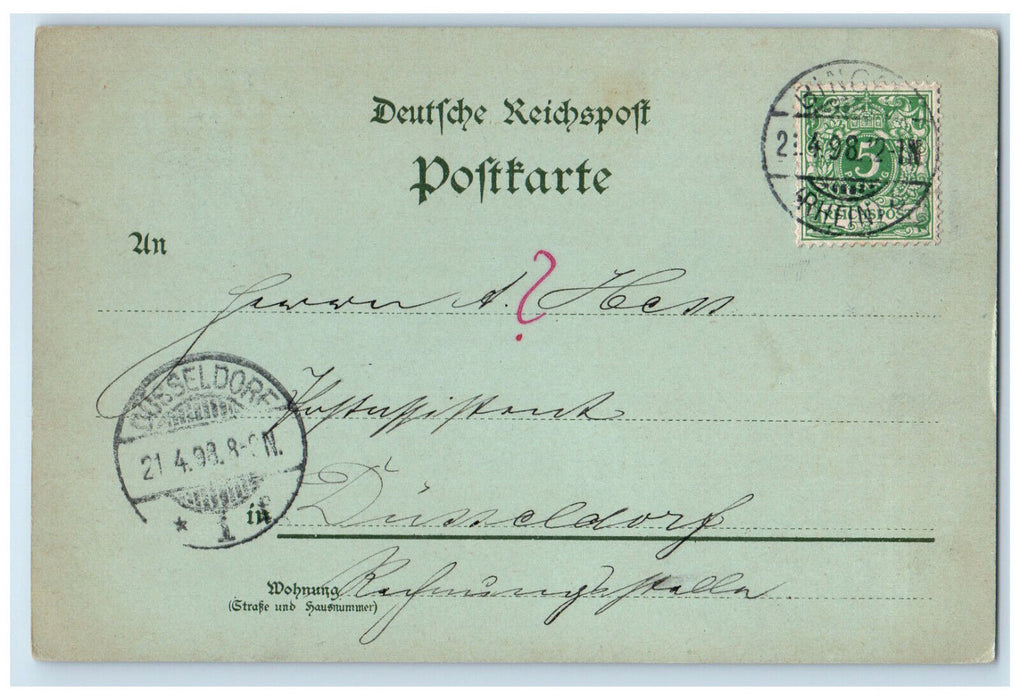 Deutsche Reichspost
Postkarte
BINGEN
21.4.98. 2-3N
(RHEIN)
5
REICHSPOST
An
Herrn A. Hess
?
Postassistent
DÜSSELDORF
21.4.98. 8-9N.
* 1 f
in Düsseldorf
Wohnung Rechnungsstelle.
(Straße und Hausnummer)